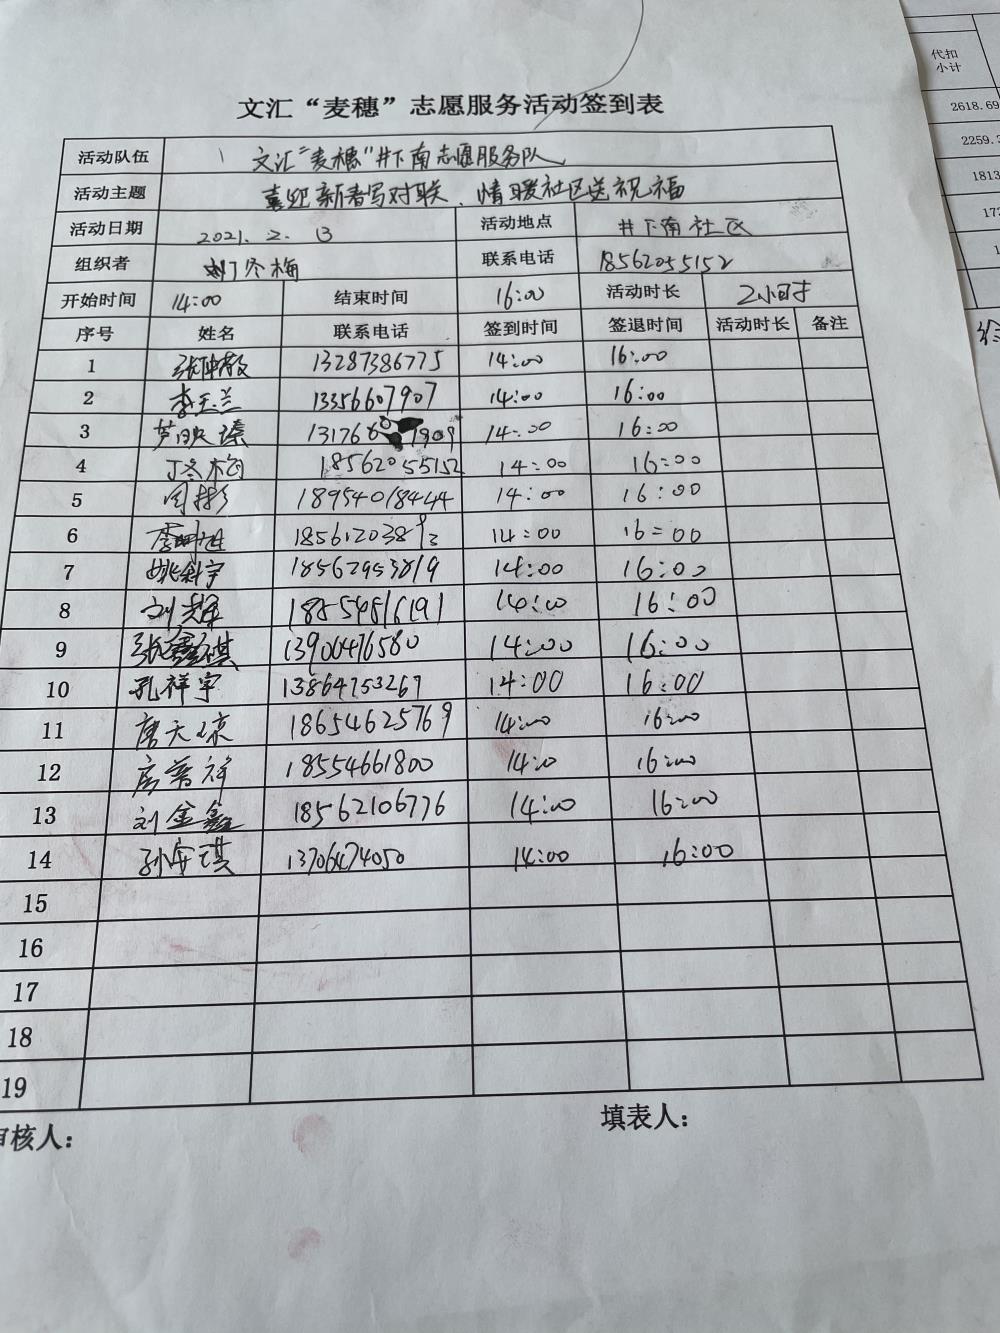 文汇“麦穗”志愿服务活动签到表
活动队伍 文汇“麦穗”井下南志愿服务队
活动主题 喜迎新春写对联、情暖社区送祝福
活动日期 2021.2.13 活动地点 井下南社区
组织者 丁冬梅 联系电话 18562055152
开始时间 14:00 结束时间 16:00 活动时长 2小时
序号 姓名 联系电话 签到时间 签退时间 活动时长 备注
1 张仲敏 13287386775 14:00 16:00
2 李玉兰 13356607907 14:00 16:00
3 131766 1909 14:00 16:00
4 丁冬梅 18562055152 14:00 16:00
5 18954018444 14:00 16:00
6 14:00 16:00
7 姚科宇 18562953819 14:00 16:00
8 刘辉 18854616191 14:00 16:00
9 张鑫琪 13906476580 14:00 16:00
10 孔祥宇 13864753267 14:00 16:00
11 唐天琼 18654625769 14:00 16:00
12 房晋祥 18554661800 14:00 16:00
13 刘金鑫 18562106776 14:00 16:00
14 孙安琪 13706474050 14:00 16:00
15
16
17
18
19
审核人： 填表人：
代扣
小计
2618.69
2259.3
1813
172
1